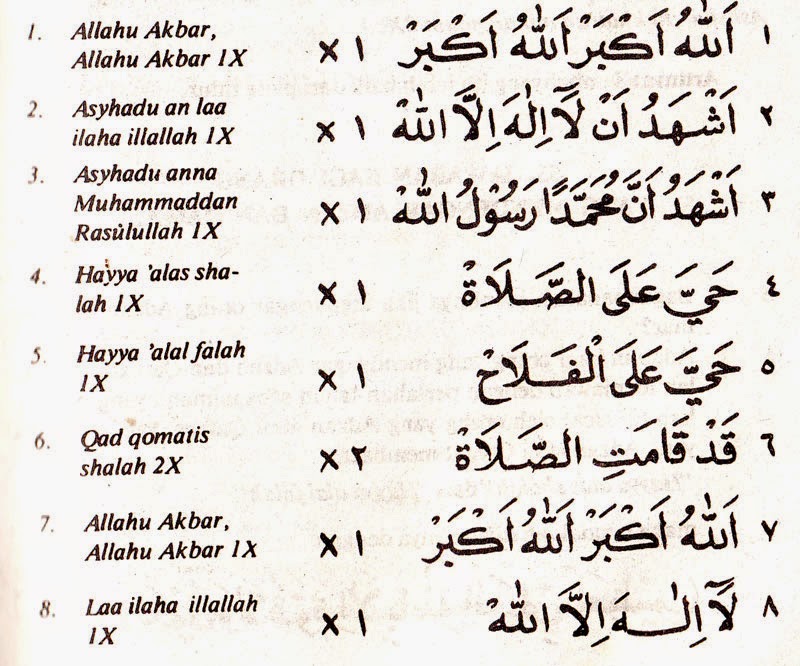 1. Allahu Akbar,
Allahu Akbar 1X
١ اَللّٰهُ اَكْبَرْ اَللّٰهُ اَكْبَرْ ١ ×
2. Asyhadu an laa
ilaha illallah 1X
٢ اَشْهَدُ اَنْ لَّا اِلٰهَ اِلَّا اللّٰهْ ١ ×
3. Asyhadu anna
Muhammaddan
Rasulullah 1X
٣ اَشْهَدُ اَنَّ مُحَمَّدًا رَسُوْلُ اللّٰهْ ١ ×
4. Hayya 'alas sha-
lah 1X
٤ حَيَّ عَلَى الصَّلَاةْ ١ ×
5. Hayya 'alal falah
1X
٥ حَيَّ عَلَى الْفَلَاحْ ١ ×
6. Qad qomatis
shalah 2X
٦ قَدْ قَامَتِ الصَّلَاةْ ٢ ×
7. Allahu Akbar,
Allahu Akbar 1X
٧ اَللّٰهُ اَكْبَرْ اَللّٰهُ اَكْبَرْ ١ ×
8. Laa ilaha illallah
1X
٨ لَآ اِلٰهَ اِلَّا اللّٰهْ ١ ×